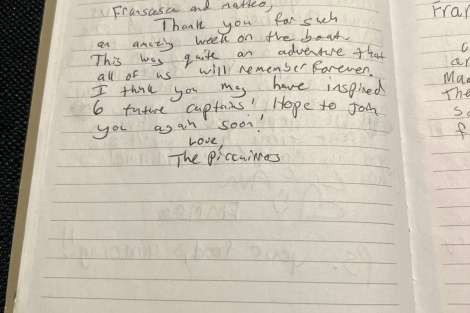 Fransesca and matteo,
Thank you for such
an amazing week on the boat.
This was quite an adventure that
all of us will remember forever.
I think you may have inspired
6 future captains! Hope to join
you again soon!
Love,
The
Fran
a
Ma
The
s
f